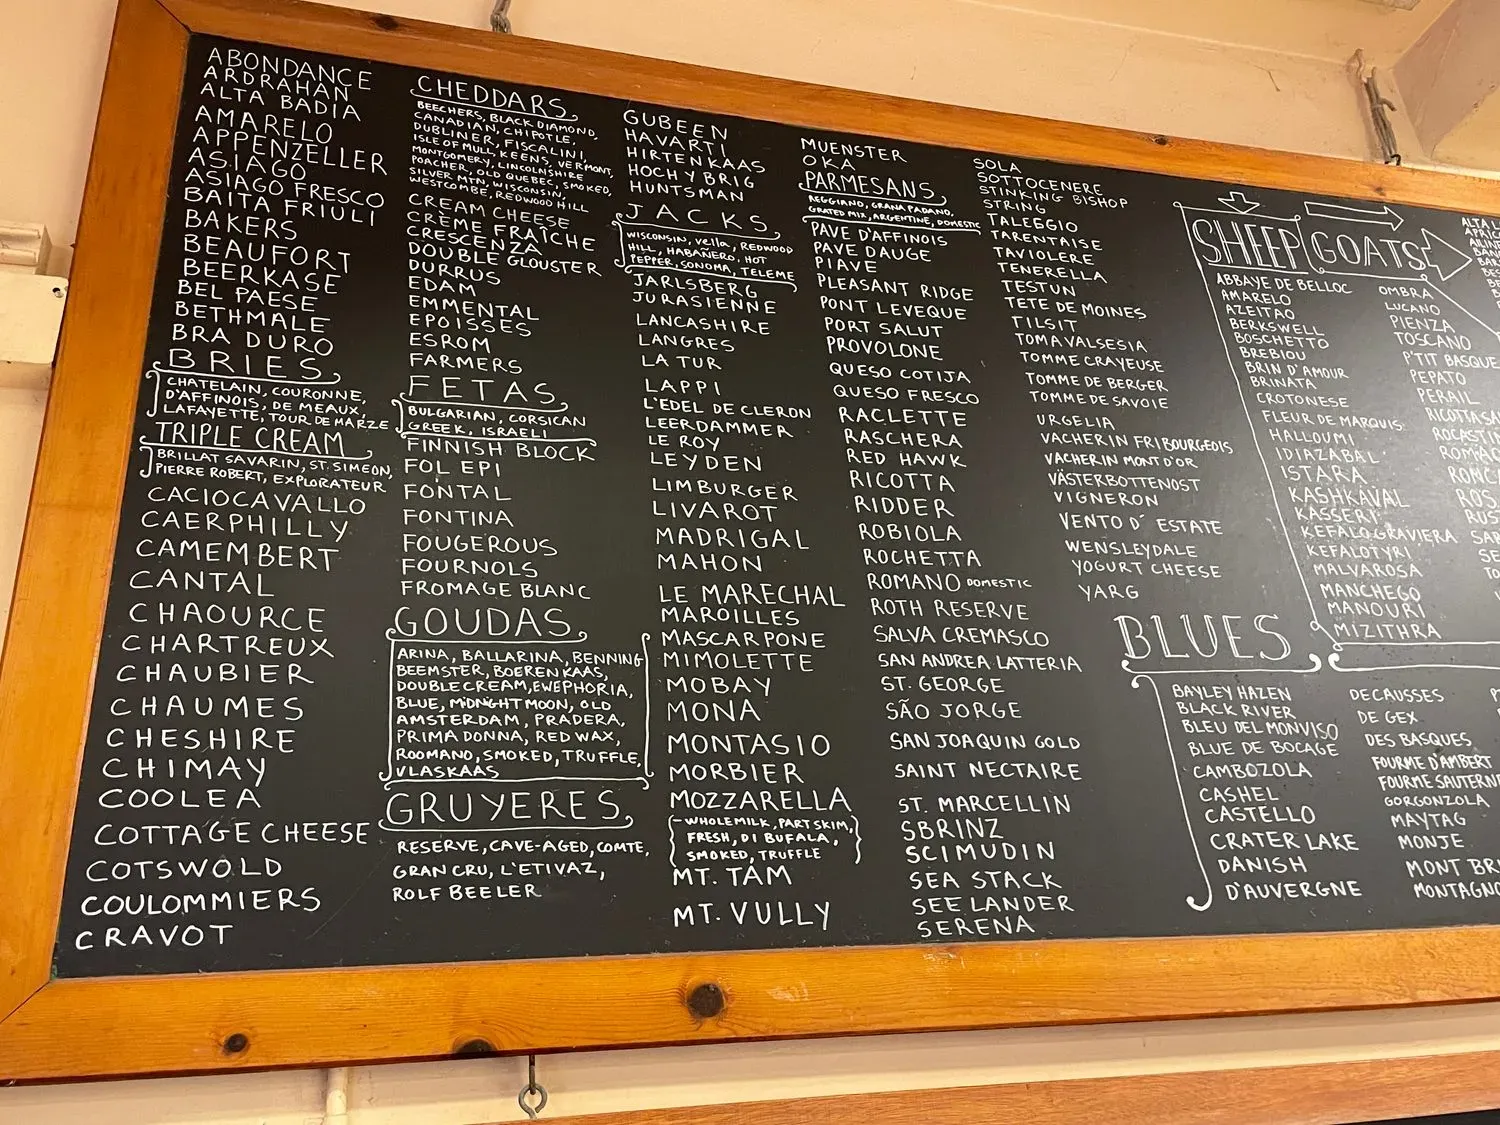 ABONDANCE
ARDRAHAN
ALTA BADIA
AMARELO
APPENZELLER
ASIAGO
ASIAGO FRESCO
BAITA FRIULI
BAKERS
BEAUFORT
BEERKASE
BEL PAESE
BETHMALE
BRA DURO
BRIES
CHATELAIN, COURONNE,
D'AFFINOIS, DE MEAUX,
LAFAYETTE, TOUR DE MARZE
TRIPLE CREAM
BRILLAT SAVARIN, ST. SIMEON,
PIERRE ROBERT, EXPLORATEUR
CACIOCAVALLO
CAERPHILLY
CAMEMBERT
CANTAL
CHAOURCE
CHARTREUX
CHAUBIER
CHAUMES
CHESHIRE
CHIMAY
COOLEA
COTTAGE CHEESE
COTSWOLD
COULOMMIERS
CRAVOT
CHEDDARS
BEECHERS, BLACK DIAMOND,
CANADIAN, CHIPOTLE,
DUBLINER, FISCALINI,
ISLE OF MULL, KEENS, VERMONT,
MONTGOMERY, LINCOLNSHIRE
POACHER, OLD QUEBEC, SMOKED,
SILVER MTN, WISCONSIN,
WESTCOMBE, REDWOOD HILL
CREAM CHEESE
CRÈME FRAÎCHE
CRESCENZA
DOUBLE GLOUSTER
DURRUS
EDAM
EMMENTAL
EPOISSES
ESROM
FARMERS
FETAS
BULGARIAN, CORSICAN
GREEK, ISRAELI
FINNISH BLOCK
FOL EPI
FONTAL
FONTINA
FOUGEROUS
FOURNOLS
FROMAGE BLANC
GOUDAS
ARINA, BALLARINA, BENNING
BEEMSTER, BOERENKAAS,
DOUBLE CREAM, EWEPHORIA,
BLUE, MIDNIGHT MOON, OLD
AMSTERDAM, PRADERA,
PRIMA DONNA, RED WAX,
ROOMANO, SMOKED, TRUFFLE,
VLASKAAS
GRUYERES
RESERVE, CAVE-AGED, COMTE,
GRAN CRU, L'ETIVAZ,
ROLF BEELER
GUBEEN
HAVARTI
HIRTENKAAS
HOCH YBRIG
HUNTSMAN
JACKS
WISCONSIN, Vella, REDWOOD
HILL, HABAÑERO, HOT
PEPPER, SONOMA, TELEME
JARLSBERG
JURASIENNE
LANCASHIRE
LANGRES
LA TUR
LAPPI
L'EDEL DE CLERON
LEERDAMMER
LE ROY
LEYDEN
LIMBURGER
LIVAROT
MADRIGAL
MAHON
LE MARECHAL
MAROILLES
MASCARPONE
MIMOLETTE
MOBAY
MONA
MONTASIO
MORBIER
MOZZARELLA
WHOLE MILK, PART SKIM,
FRESH, DI BUFALA,
SMOKED, TRUFFLE
MT. TAM
MT. VULLY
MUENSTER
OKA
PARMESANS
REGGIANO, GRANA PADANO,
GRATED MIX, ARGENTINE, DOMESTIC
PAVE D'AFFINOIS
PAVE DAUGE
PIAVE
PLEASANT RIDGE
PONT LEVEQUE
PORT SALUT
PROVOLONE
QUESO COTIJA
QUESO FRESCO
RACLETTE
RASCHERA
RED HAWK
RICOTTA
RIDDER
ROBIOLA
ROCHETTA
ROMANO DOMESTIC
ROTH RESERVE
SALVA CREMASCO
SAN ANDREA LATTERIA
ST. GEORGE
SÃO JORGE
SAN JOAQUIN GOLD
SAINT NECTAIRE
ST. MARCELLIN
SBRINZ
SCIMUDIN
SEA STACK
SEE LANDER
SERENA
SOLA
SOTTOCENERE
STINKING BISHOP
STRING
TALEGGIO
TARENTAISE
TAVIOLERE
TENERELLA
TESTUN
TETE DE MOINES
TILSIT
TOMA VALSESIA
TOMME CRAYEUSE
TOMME DE BERGER
TOMME DE SAVOIE
URGELIA
VACHERIN FRIBOURGEOIS
VACHERIN MONT D'OR
VÄSTERBOTTENOST
VIGNERON
VENTO D' ESTATE
WENSLEYDALE
YOGURT CHEESE
YARG
SHEEP
ABBAYE DE BELLOC
AMARELO
AZEITAO
BERKSWELL
BOSCHETTO
BREBIOU
BRIN D'AMOUR
BRINATA
CROTONESE
FLEUR DE MARQUIS
HALLOUMI
IDIAZABAL
ISTARA
KASHKAVAL
KASSERY
KEFALOGRAVIERA
KEFALOTYRI
MALVAROSA
MANCHEGO
MANOURI
MIZITHRA
OMBRA
LUCANO
PIENZA
TOSCANO
P'TIT BASQUE
PEPATO
PERAIL
GOATS
BLUES
BAYLEY HAZEN
BLACK RIVER
BLEU DEL MONVISO
BLUE DE BOCAGE
CAMBOZOLA
CASHEL
CASTELLO
CRATER LAKE
DANISH
D'AUVERGNE
DECAUSSES
DE GEX
DES BASQUES
FOURME D'AMBERT
FOURME SAUTERNE
GORGONZOLA
MAYTAG
MONJE
MONT BRI
MONTAGNO